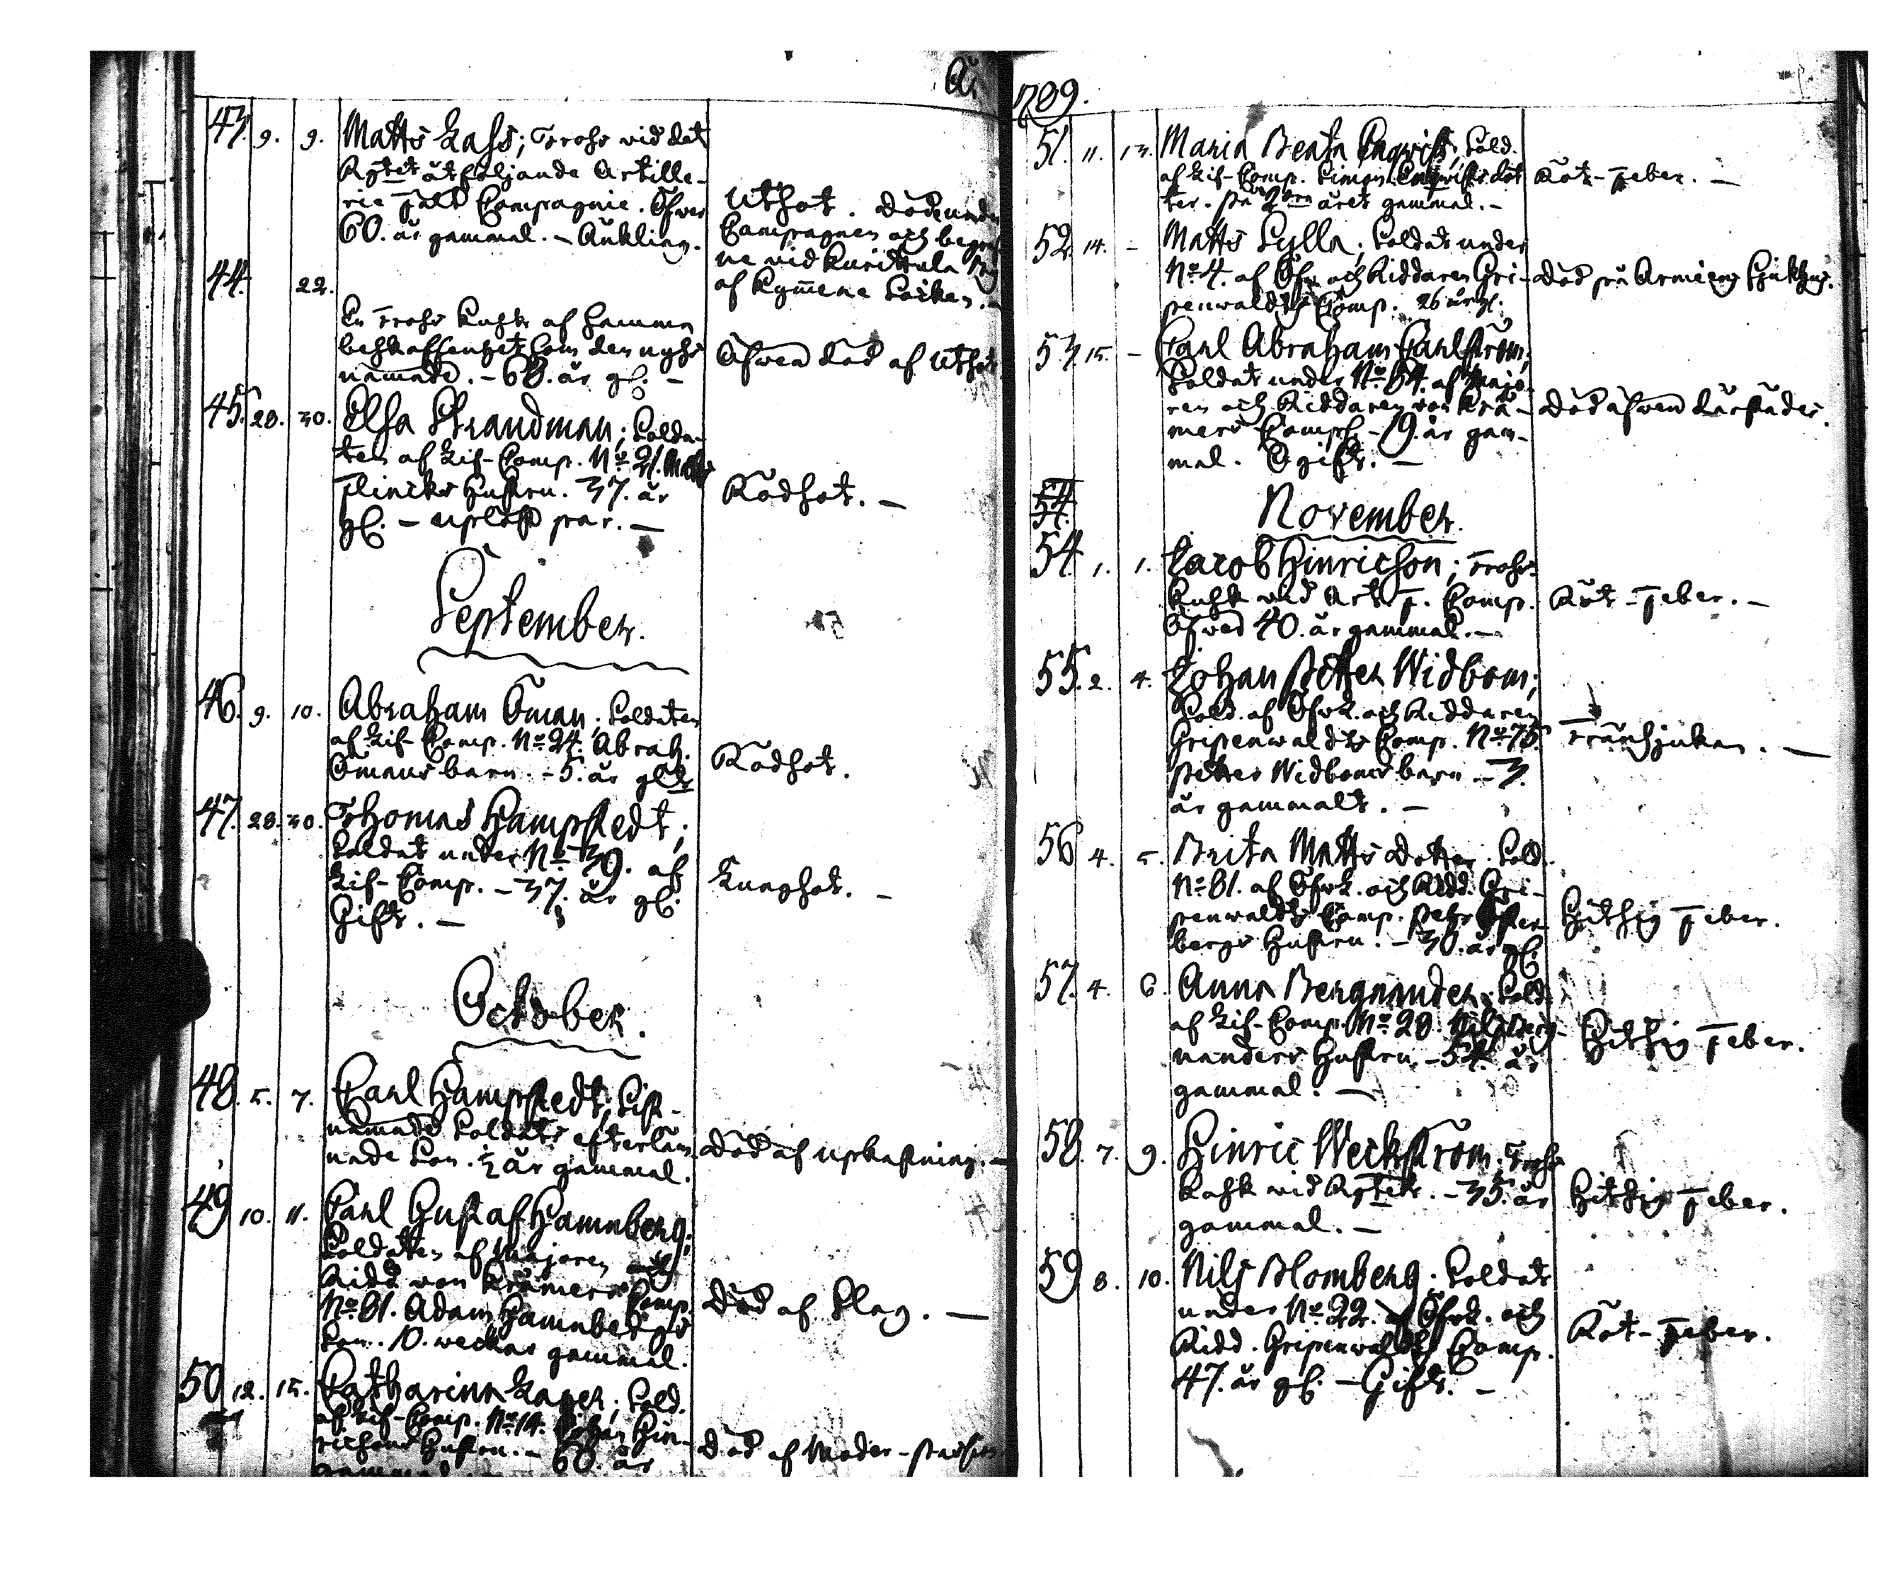 A:
1789.
43. 9. 9. Matts Lass; Tross vid det
Rgtet åtföljande Artille-
rie Fält Compagnie. Öfver
60. år gammal. – Änkling.
Utsot. Död under
Campagnen och begraf
ne vid
af Kymene Socken. –
44. 22.
En Tross Kusk af samma
beskaffenhet som den nyss
nämnde. – 68. år gl. –
Äfven död af Utsot
45. 28. 30. Elsa Strandman; Solda-
ten af Lif-Comp. No 21. Matts
Flincks Hustru. 37. år
gl. – par. –
Rödsot. –
September.
46. 9. 10. Abraham Öman; Soldaten
af Lif-Comp. No 24. Abrah.
Ömans barn. – 5. år glt
Rödsot.
47. 28. 30. Thomas Hampstedt;
Soldat under No 39. af
Lif-Comp. – 37. år gl.
Gift. –
Lungsot. –
October.
48. 5. 7. Carl Hampstedt; Sist-
nämnde Soldats efterläm
nade Son. ½ år gammal.
Död af uprkastning. –
49 10. 11. Carl Gustaf Hamnberg;
Soldaten af Majoren och
Ridd. von Kræmers Comp.
No 81. Adam Hamnbergs
Son. 10. veckor gammal.
Död af Slag. –
50 12. 15. Catharina ; Sold.
af Lif-Comp. No 14. Johan Hin-
richsons Hustru. – 60. år
gammal
Död af Moder-
51. 11. 13. Maria Beata Engvist; Sold.
af Lif-Comp. Simon Engvists dot
ter. på 2dra året gammal. –
Röt-Feber. –
52. 14. – Matts Sylla; Soldat under
No 4. af Öfv. och Riddaren Gri-
penwaldts Comp. 26 år gl.
Död på Armeens Sjukhus.
53. 15. – Carl Abraham Carlström;
Soldat under No 84. af Majo-
ren och Riddaren von Kræ-
mers Comp. – 19. år gam-
mal. Ogift. –
Död äfven därstädes.
54.
November.
54 1. 1. Jacob Hinricson; Tross-
Kusk vid Art. F. Comp.
Öfver 40. år gammal. –
Röt-Feber. –
55. 2. 4. Johan Petter Widbom;
Sold. af Öfv. och Riddaren
Gripenwaldts Comp. No 75.
Petter Widboms barn – 3.
år gammalt. –
Tränsjukan. –
56 4. 5. Brita Matts Dotter. Sold.
No 81. af Öfv. och Ridd. Gri-
penwaldts Comp. Petr. Öster-
bergs Hustru. – 30. år gl.
Hitsig Feber.
57. 4. 6. Anna Bergnander; Sold.
af Lif-Comp. No 28. Nils Berg-
nanders Hustru. – 54. år
gammal. –
Hitsig Feber.
58. 7. 9. Hinric Weckström; Tross
Kusk vid Rgtet. – 35. år
gammal. –
Hitsig Feber.
59 8. 10. Nils Blomberg; Soldat
under No 22. af Öfv. och
Ridd. Gripenwaldts Comp.
47. år gl. – Gift. –
Röt-Feber.